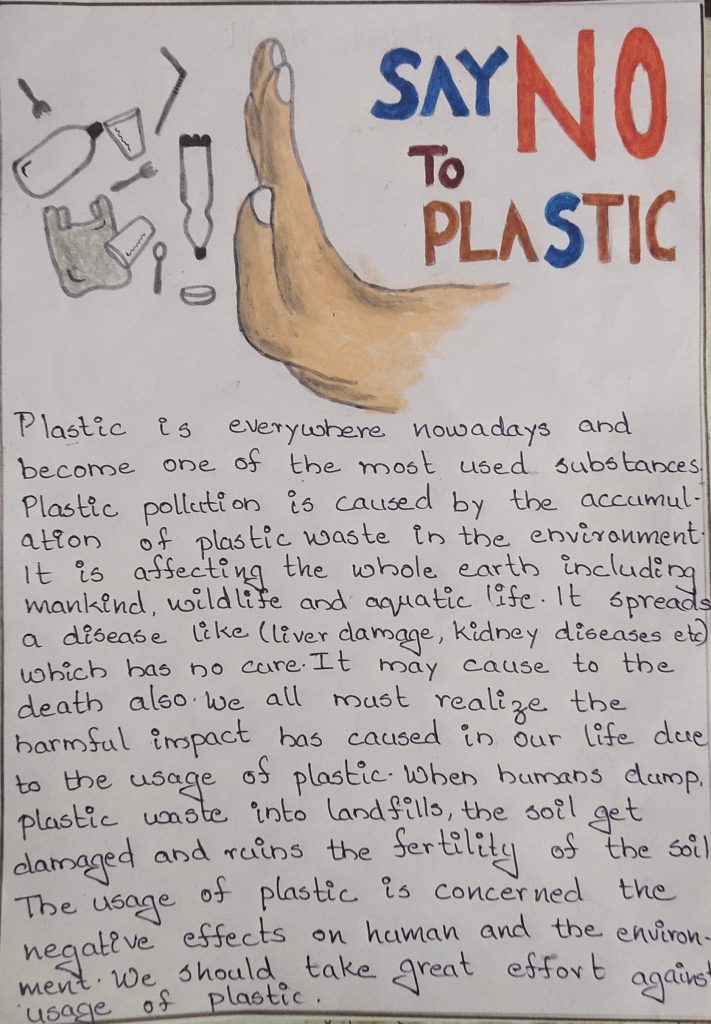 SAY NO
TO
PLASTIC
Plastic is everywhere nowadays and
become one of the most used substances.
Plastic pollution is caused by the accumul-
ation of plastic waste in the environment.
It is affecting the whole earth including
mankind, wildlife and aquatic life. It spreads
a disease like (liver damage, kidney diseases etc)
which has no cure. It may cause to the
death also. We all must realize the
harmful impact has caused in our life due
to the usage of plastic. When humans dump.
plastic waste into landfills, the soil get
damaged and ruins the fertility of the soil
The usage of plastic is concerned the
negative effects on human and the environ-
ment. We should take great effort against
usage of plastic.